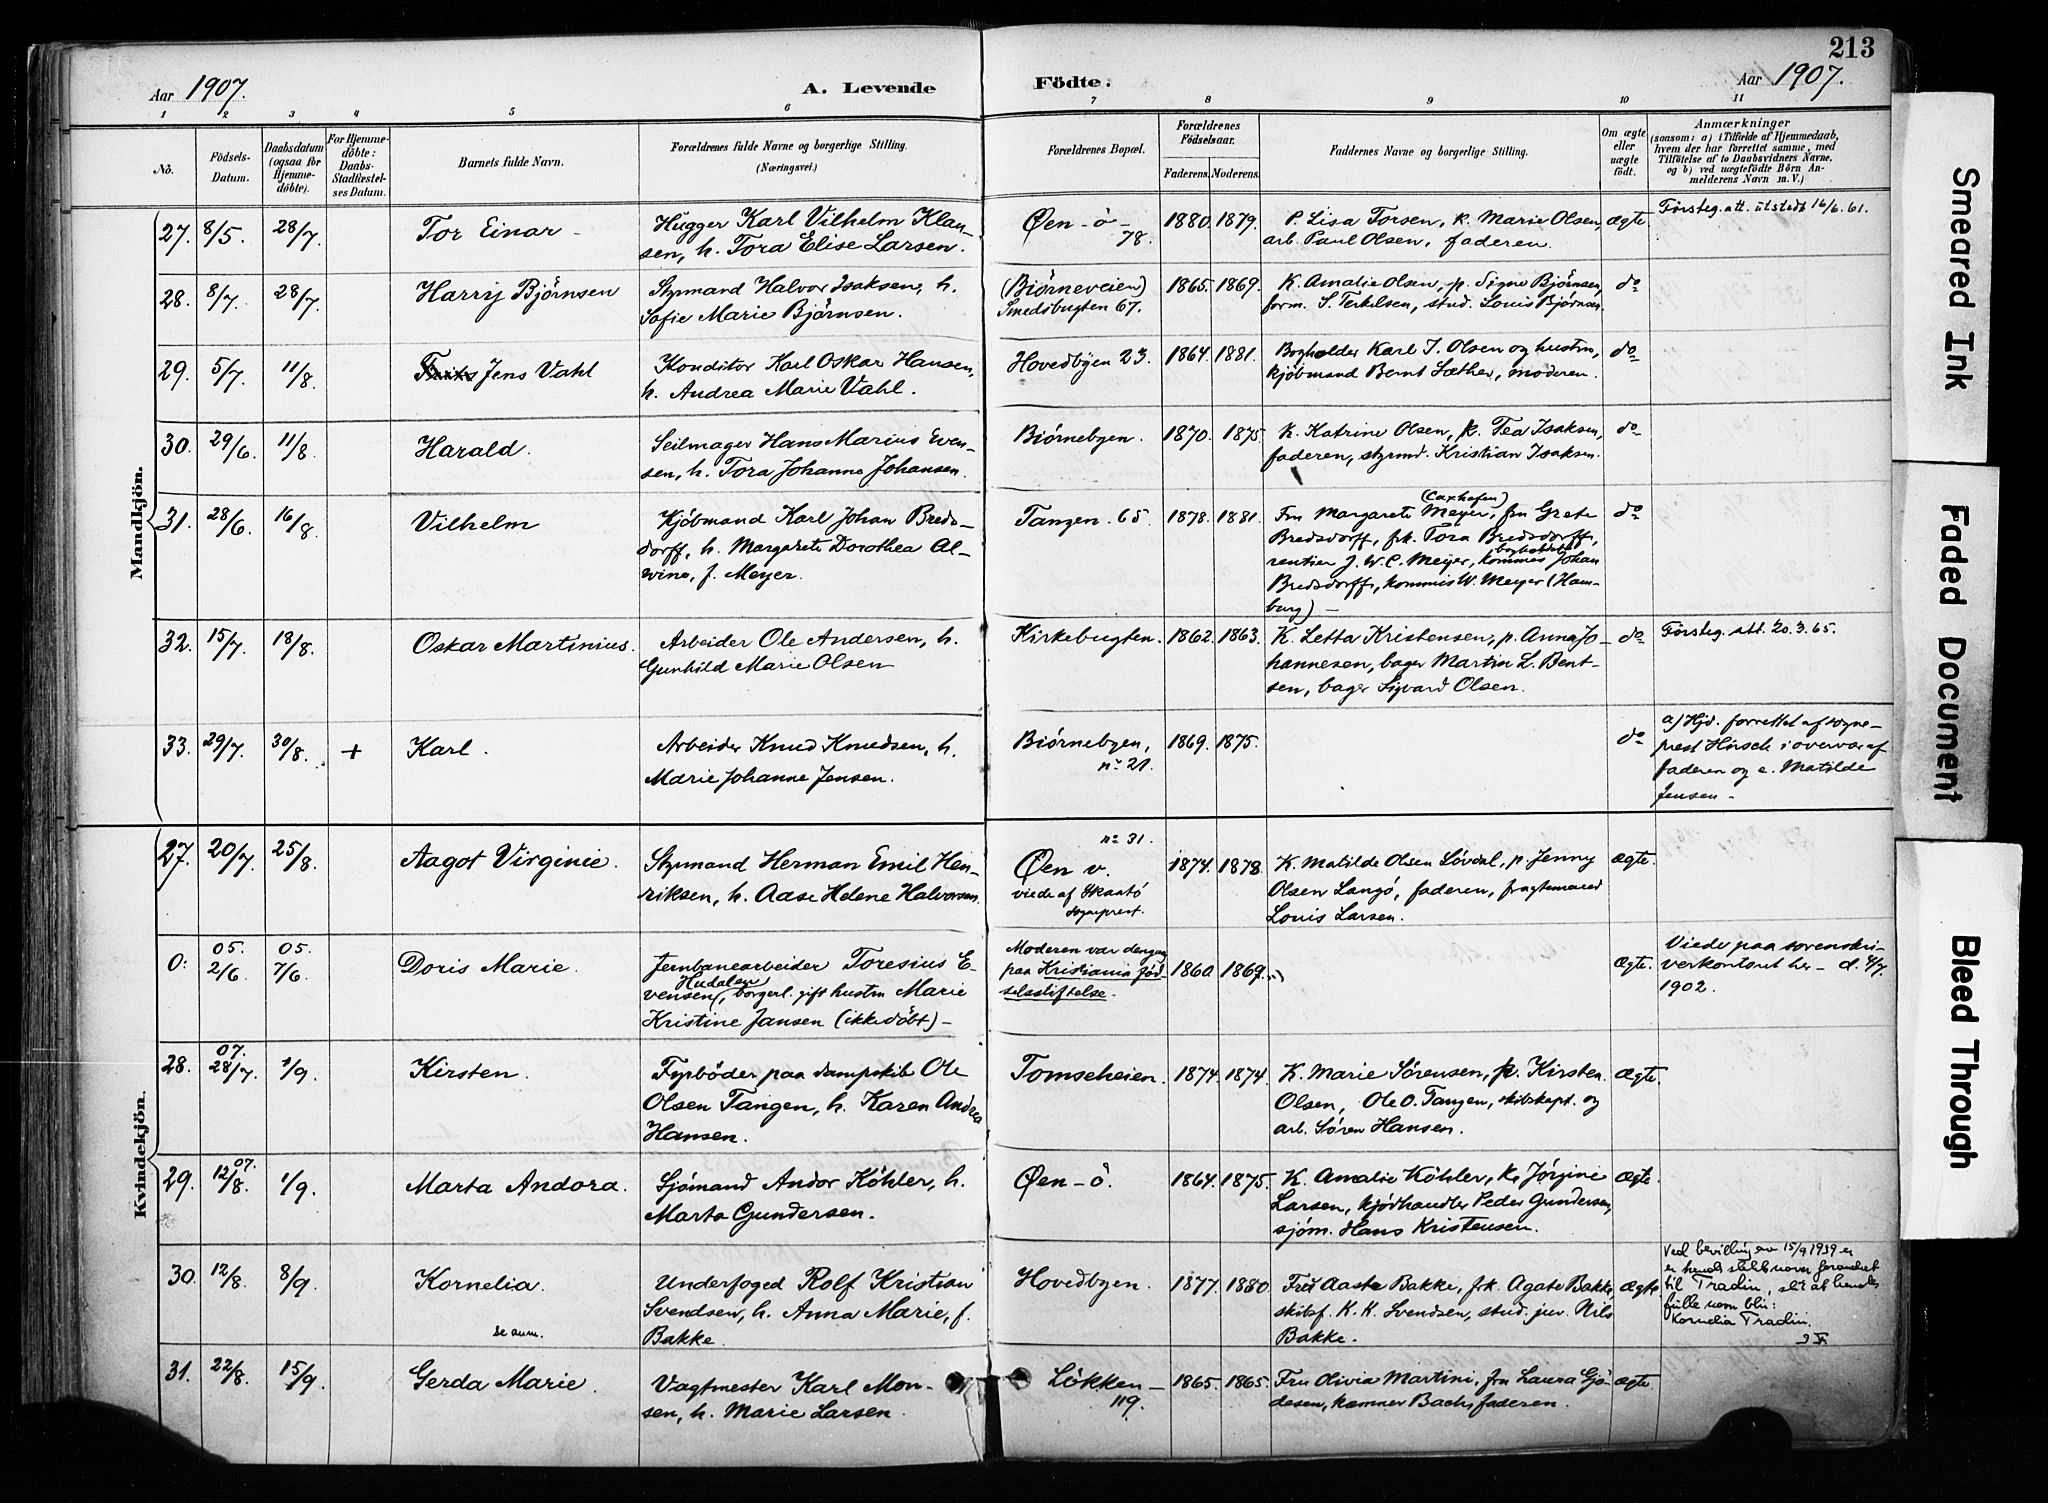 213
Aar 1907.
A. Levende Födte.
Aar 1907.
1 2 3 4 5 6 7 8 9 10 11
No.
Födsels-Datum.
Daabsdatum (ogsaa for Hjemme-döbte).
For Hjemme-döbte: Daabs-Stadfæstel-ses Datum.
Barnets fulde Navn.
Forældrenes fulde Navne og borgerlige Stilling.
(Næringsvei.)
Forældrenes Bopæl.
Forældrenes Födselsaar.
Faderens. Moderens.
Faddernes Navne og borgerlige Stilling.
Om ægte eller uægte födt.
Anmærkninger
(saasom: a) i Tilfælde af Hjemmedaab,
hvem der har forrettet samme, med
Tilföielse af to Daabsvidners Navne,
og b) ved uægtefödte Börn An-
melderens Navn m. V.)
Mandkjön.
27. 8/5. 28/7. Tor Einar - Hugger Karl Vilhelm Klau-
sen, h. Tora Elise Larsen. Øen - ö - 78. 1880. 1879. P. Lisa Torsen, k. Marie Olsen,
arb. Paul Olsen, faderen. ægte Førsteg. att. utstedt 16/6. 61.
28. 8/7. 28/7. Harry Bjørnsen Styrmand Halvor Isaksen, h.
Sofie Marie Bjørnsen. (Biørneveien)
Smedsbugten 67. 1865. 1869. K. Amalie Olsen, p. Signe Bjørnsen,
form. S. Terkelsen, stud. Louis Bjørnsen. do
29. 5/7. 11/8. Jens Vahl Konditor Karl Oskar Hansen,
h. Andrea Marie Vahl. Hovedbyen 23. 1864. 1881. Bogholder Karl J. Olsen og hustru,
kjøbmand Bernt Sæther, moderen. do
30. 29/6. 11/8. Harald. Seilmager Hans Marius Even-
sen, h. Tora Johanne Johansen. Biørnebyen. 1870. 1875. K. Katrine Olsen, p. Tea Isaksen,
faderen, styrmd. Kristian Isaksen. do
31. 28/6. 16/8. Vilhelm Kjøbmand Karl Johan Breds-
dorff, h. Margarete Dorothea Al-
wine, f. Meyer. Tangen. 65. 1878. 1881. Fru Margarete Meyer (Cuxhafen), fru Grete
Bredsdorff, frk. Tora Bredsdorff,
rentier J. W. C. Meyer, bogholder Johan
Bredsdorff, kommis W. Meyer (Ham-
burg) - do
32. 15/7. 18/8. Oskar Martinius. Arbeider Ole Andersen, h.
Gunhild Marie Olsen Kirkebugten. 1862. 1863. K. Letta Kristensen, p. Anna Jo-
hannesen, bager Martin L. Bent-
sen, bager Sigvard Olsen. do Førsteg. att. 20.3.65.
33. 29/7. 30/8. + Karl. Arbeider Knud Knudsen, h.
Marie Johanne Jensen. Biørnebyen,
no 21. 1869. 1875. do a) Hjd. forrettet af sogne-
prest Hirsch i overvær af
faderen og e. Matilde
Jensen.
Kvindekjön.
27. 20/7. 25/8. Aagot Virginie. Styrmand Herman Emil Hen-
riksen, h. Aase Helene Halvorsen. no 31.
Øen v.
viede af Skaatö
sogneprest. 1874. 1878. K. Matilde Olsen Løvdal, p. Jenny
Olsen Langö, faderen, fragtemand
Louis Larsen. ægte.
0: 05. 2/6. 05. 7/6. Doris Marie. Jernbanearbeider Toresius E-
vensen Hudalen, borgerl. gift hustru Marie
Kristine Jansen (ikke döbt) - Moderen var dengang
paa Kristiania fød-
selsstiftelse. 1860. 1869. ægte. Viede paa sorenskri-
verkontoret her - d. 4/7.
1902.
28. 07. 28/7. 1/9. Kirsten. Fyrbøder paa dampskib Ole
Olsen Tangen, h. Karen Andrea
Hansen. Tomseheien. 1874. 1874. K. Marie Sørensen, p. Kirsten
Olsen, Ole O. Tangen, skibskapt. og
arb. Søren Hansen. ægte.
29. 07. 12/8. 1/9. Marta Andora. Sjømand Andor Köhler, h.
Marta Gundersen. Øen - ö. 1864. 1875. K. Amalie Köhler, k. Jørgine
Larsen, kjødhandler Peder Gundersen,
sjøm. Hans Kristensen. ægte.
30. 12/8. 8/9. Kornelia.
se anm. Underfoged Rolf Kristian
Svendsen, h. Anna Marie, f.
Bakke. Hovedbyen. 1877. 1880. Frk Aasta Bakke, frk. Agate Bakke,
skibsf. K. K. Svendsen, stud. jur. Nils
Bakke. ægte Ved bevilling av 15/9 1939 er
er hendes slektsnavn forandret
til Tradin, slik at hendes
fulle navn blir:
Kornelia Tradin.
31. 22/8. 15/9. Gerda Marie. Vagtmester Karl Mon-
sen, h. Marie Larsen. Løkken - 119. 1865. 1865. Fru Olivia Martini, fru Laura Gjø-
desen, kæmner Bach, faderen. ægte.
Smeared Ink
Faded Document
Bleed Through